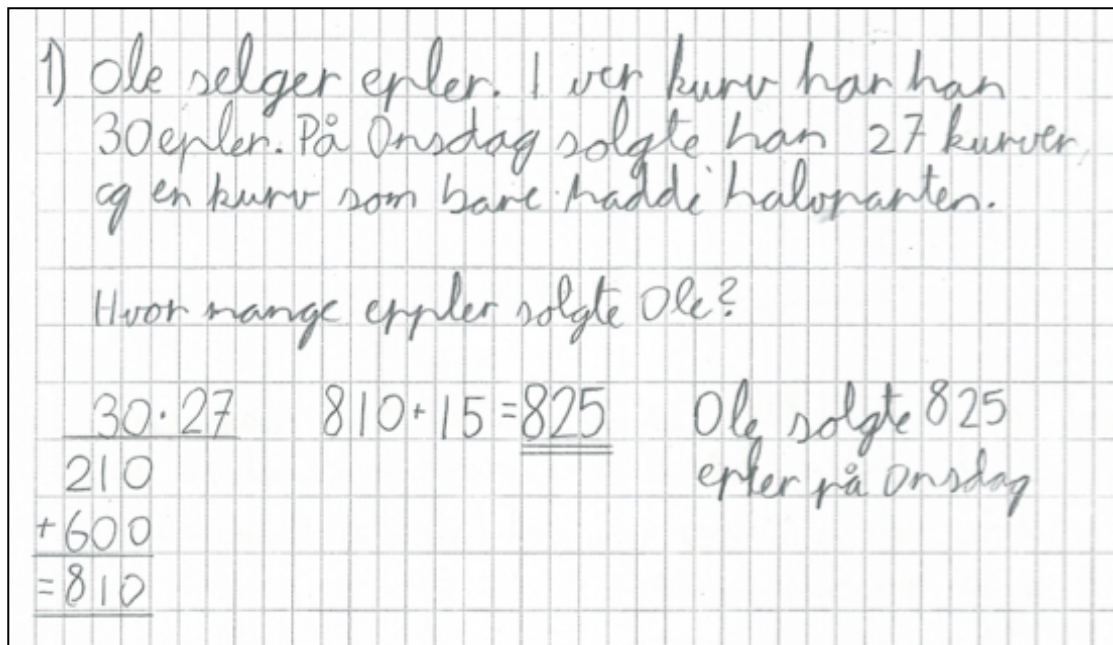 1) Ole selger epler. I ver kurv har han
30 epler. På Onsdag solgte han 27 kurver
og en kurv som bare hadde halvparten.
Hvor mange eppler solgte Ole?
30·27 810+15=825 Ole solgte 825
210 epler på Onsdag
+600
=810